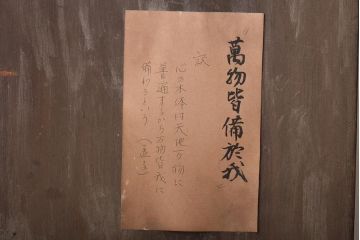 萬物皆備於我
訳
心の本体は天地万物に
普遍するから万物皆我に
備わるという (孟子)